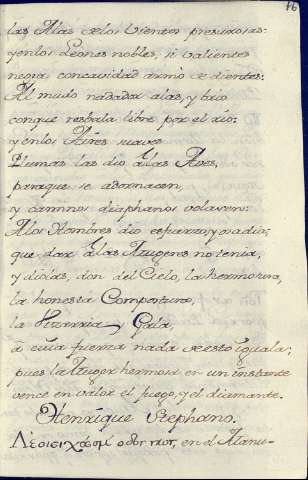 16
las Alas de los vientos presurosas:
y en los Leones nobles, i valientes
negra concavidad armò de dientes:
Al mudo nadador alas, y brio
con que resbala libre por el rio:
y en los Aires suaves
Plumas las dio à las Aves,
para que se adornasen,
y caminos diaphanos volasen:
A los Hombres dio esfuerzo, y osadia,
que dar à las Mugeres no tenia,
y diolas, don del Cielo, la hermosura,
la honesta Compostura,
la Bizarria, y Gala,
à cuia fuerza nada se esto iguala;
pues la Muger hermosa en un instante
vence en valor el fuego, y el diamante.
Henrique Stephano.
en el Manu-